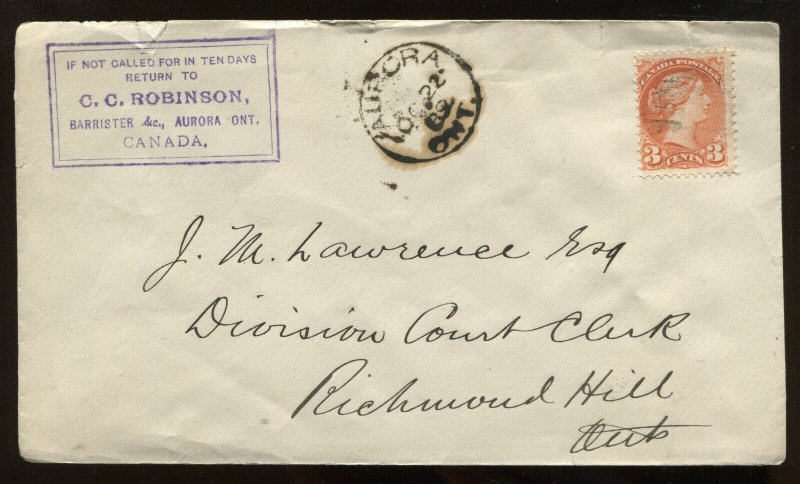 IF NOT CALLED FOR IN TEN DAYS
RETURN TO
C. C. ROBINSON,
BARRISTER &c., AURORA ONT.
CANADA.
AURORA
OC 22
89
ONT.
CANADA POSTAGE
3 CENTS 3
J. M. Lawrence Esq
Division Court Clerk
Richmond Hill
Ont